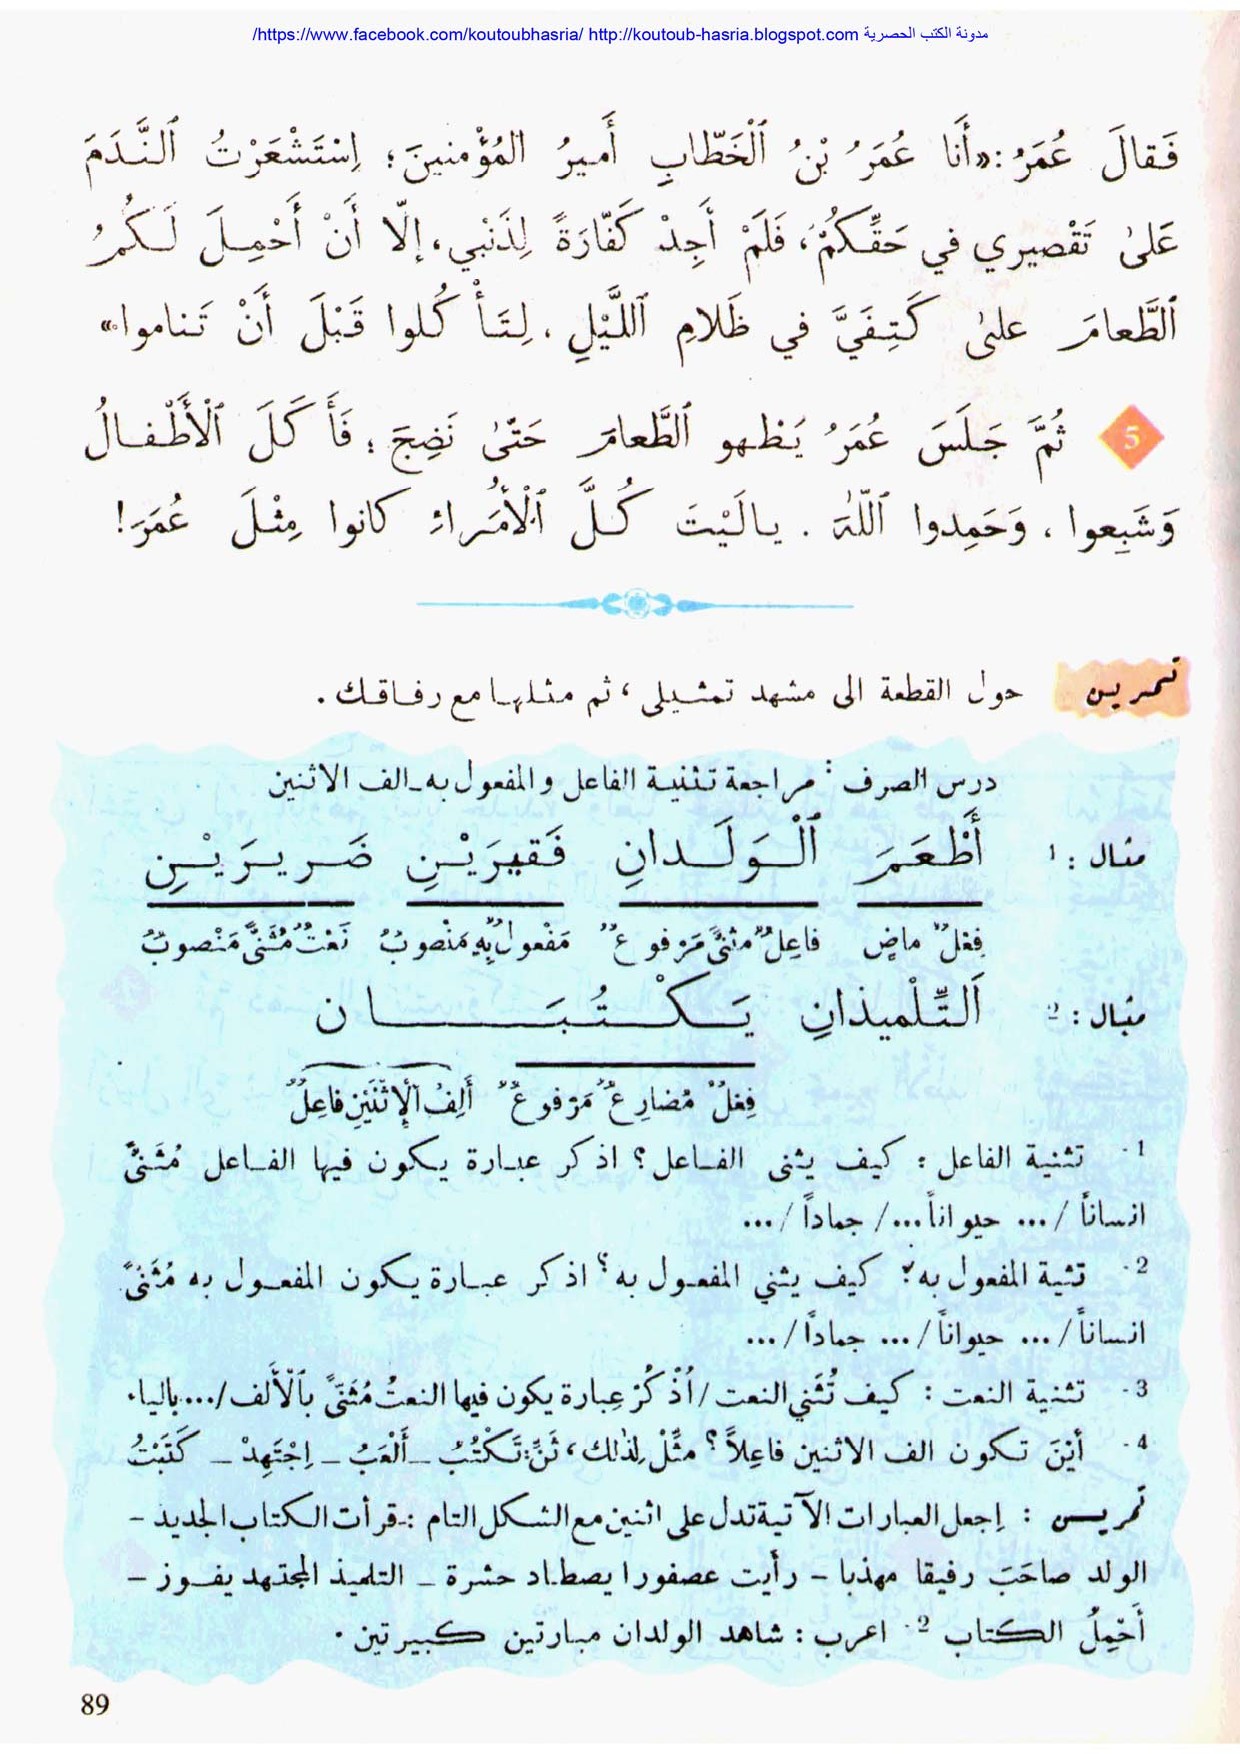 https://www.facebook.com/koutoubhasria/ http://koutoub-hasria.blogspot.com مدونة الكتب الحصرية/
فَقالَ عُمَرُ: «أَنا عُمَرُ بْنُ ٱلْخَطّابِ أَميرُ المُؤْمنينَ؛ اِسْتَشْعَرْتُ ٱلنَّدَمَ
عَلىٰ تَقْصيري في حَقِّكُمْ، فَلَمْ أَجِدْ كَفّارَةً لِذَنْبي، إلّا أَنْ أَحْمِلَ لَكُمُ
ٱلطَّعامَ علىٰ كَتِفَيَّ في ظَلامِ ٱللَّيْلِ، لِتَأْكُلوا قَبْلَ أَنْ تَناموا»
5 ثُمَّ جَلَسَ عُمَرُ يَطْهو ٱلطَّعامَ حَتّىٰ نَضِجَ؛ فَأَكَلَ ٱلْأَطْفالُ
وَشَبِعوا، وَحَمِدوا ٱللّٰهَ. يالَيْتَ كُلَّ ٱلْأُمَراءِ كانوا مِثْلَ عُمَرَ!
تمرين حول القطعة الى مشهد تمثيلي، ثم مثلها مع رفاقك.
درس الصرف: مراجعة تثنية الفاعل والمفعول به ـ الف الاثنين
مثال: 1 أَطْعَمَ ٱلْوَلَدانِ فَقيرَيْنِ ضَريرَيْنِ
فِعْلٌ ماضٍ فاعِلٌ مثنىً مَرْفوعٌ مَفْعولٌ بِهِ مَنْصوبٌ نَعْتٌ مُثَنىًّ مَنْصوبٌ
مثال: 2 اَلتِّلْميذانِ يَكْتُبَانِ
فِعْلٌ مُضارِعٌ مَرْفوعٌ أَلِفُ ٱلْإِثْنَيْنِ فاعِلٌ
1- تثنية الفاعل: كيف يثنى الفاعل؟ اذكر عبارة يكون فيها الفاعل مُثَنىًّ
انساناً /... حيواناً.../ جماداً /...
2- تثية المفعول به؟ كيف يثني المفعول به؟ اذكر عبارة يكون المفعول به مُثَنىًّ
انساناً /... حيواناً /... جماداً /...
3- تثنية النعت: كيف تُثَني النعت / اُذْكُرْ عِبارة يكون فيها النعتُ مُثَنىًّ بِٱلْأَلف /... باليا.
4- أَيْنَ تكون الف الاثنين فاعِلاً؟ مثِّلْ لِذٰلك، ثَنِّ: تَكْتُبُ ـ أَلْعَبُ ـ اِجْتَهِدْ ـ كَتَبْتُ
تمرين: اِجعل العبارات الآتية تدل على اثنين مع الشكل التام: ـ قرأت الكتاب الجديد ـ
الولد صاحَبَ رفيقا مهذبا ـ رأيت عصفورا يصطاد حشرة ـ التلميذ المجتهد يفوز ـ
أَحْمِلُ الكتاب 2- اعرب: شاهد الولدان مبارتين كبيرتين.
89